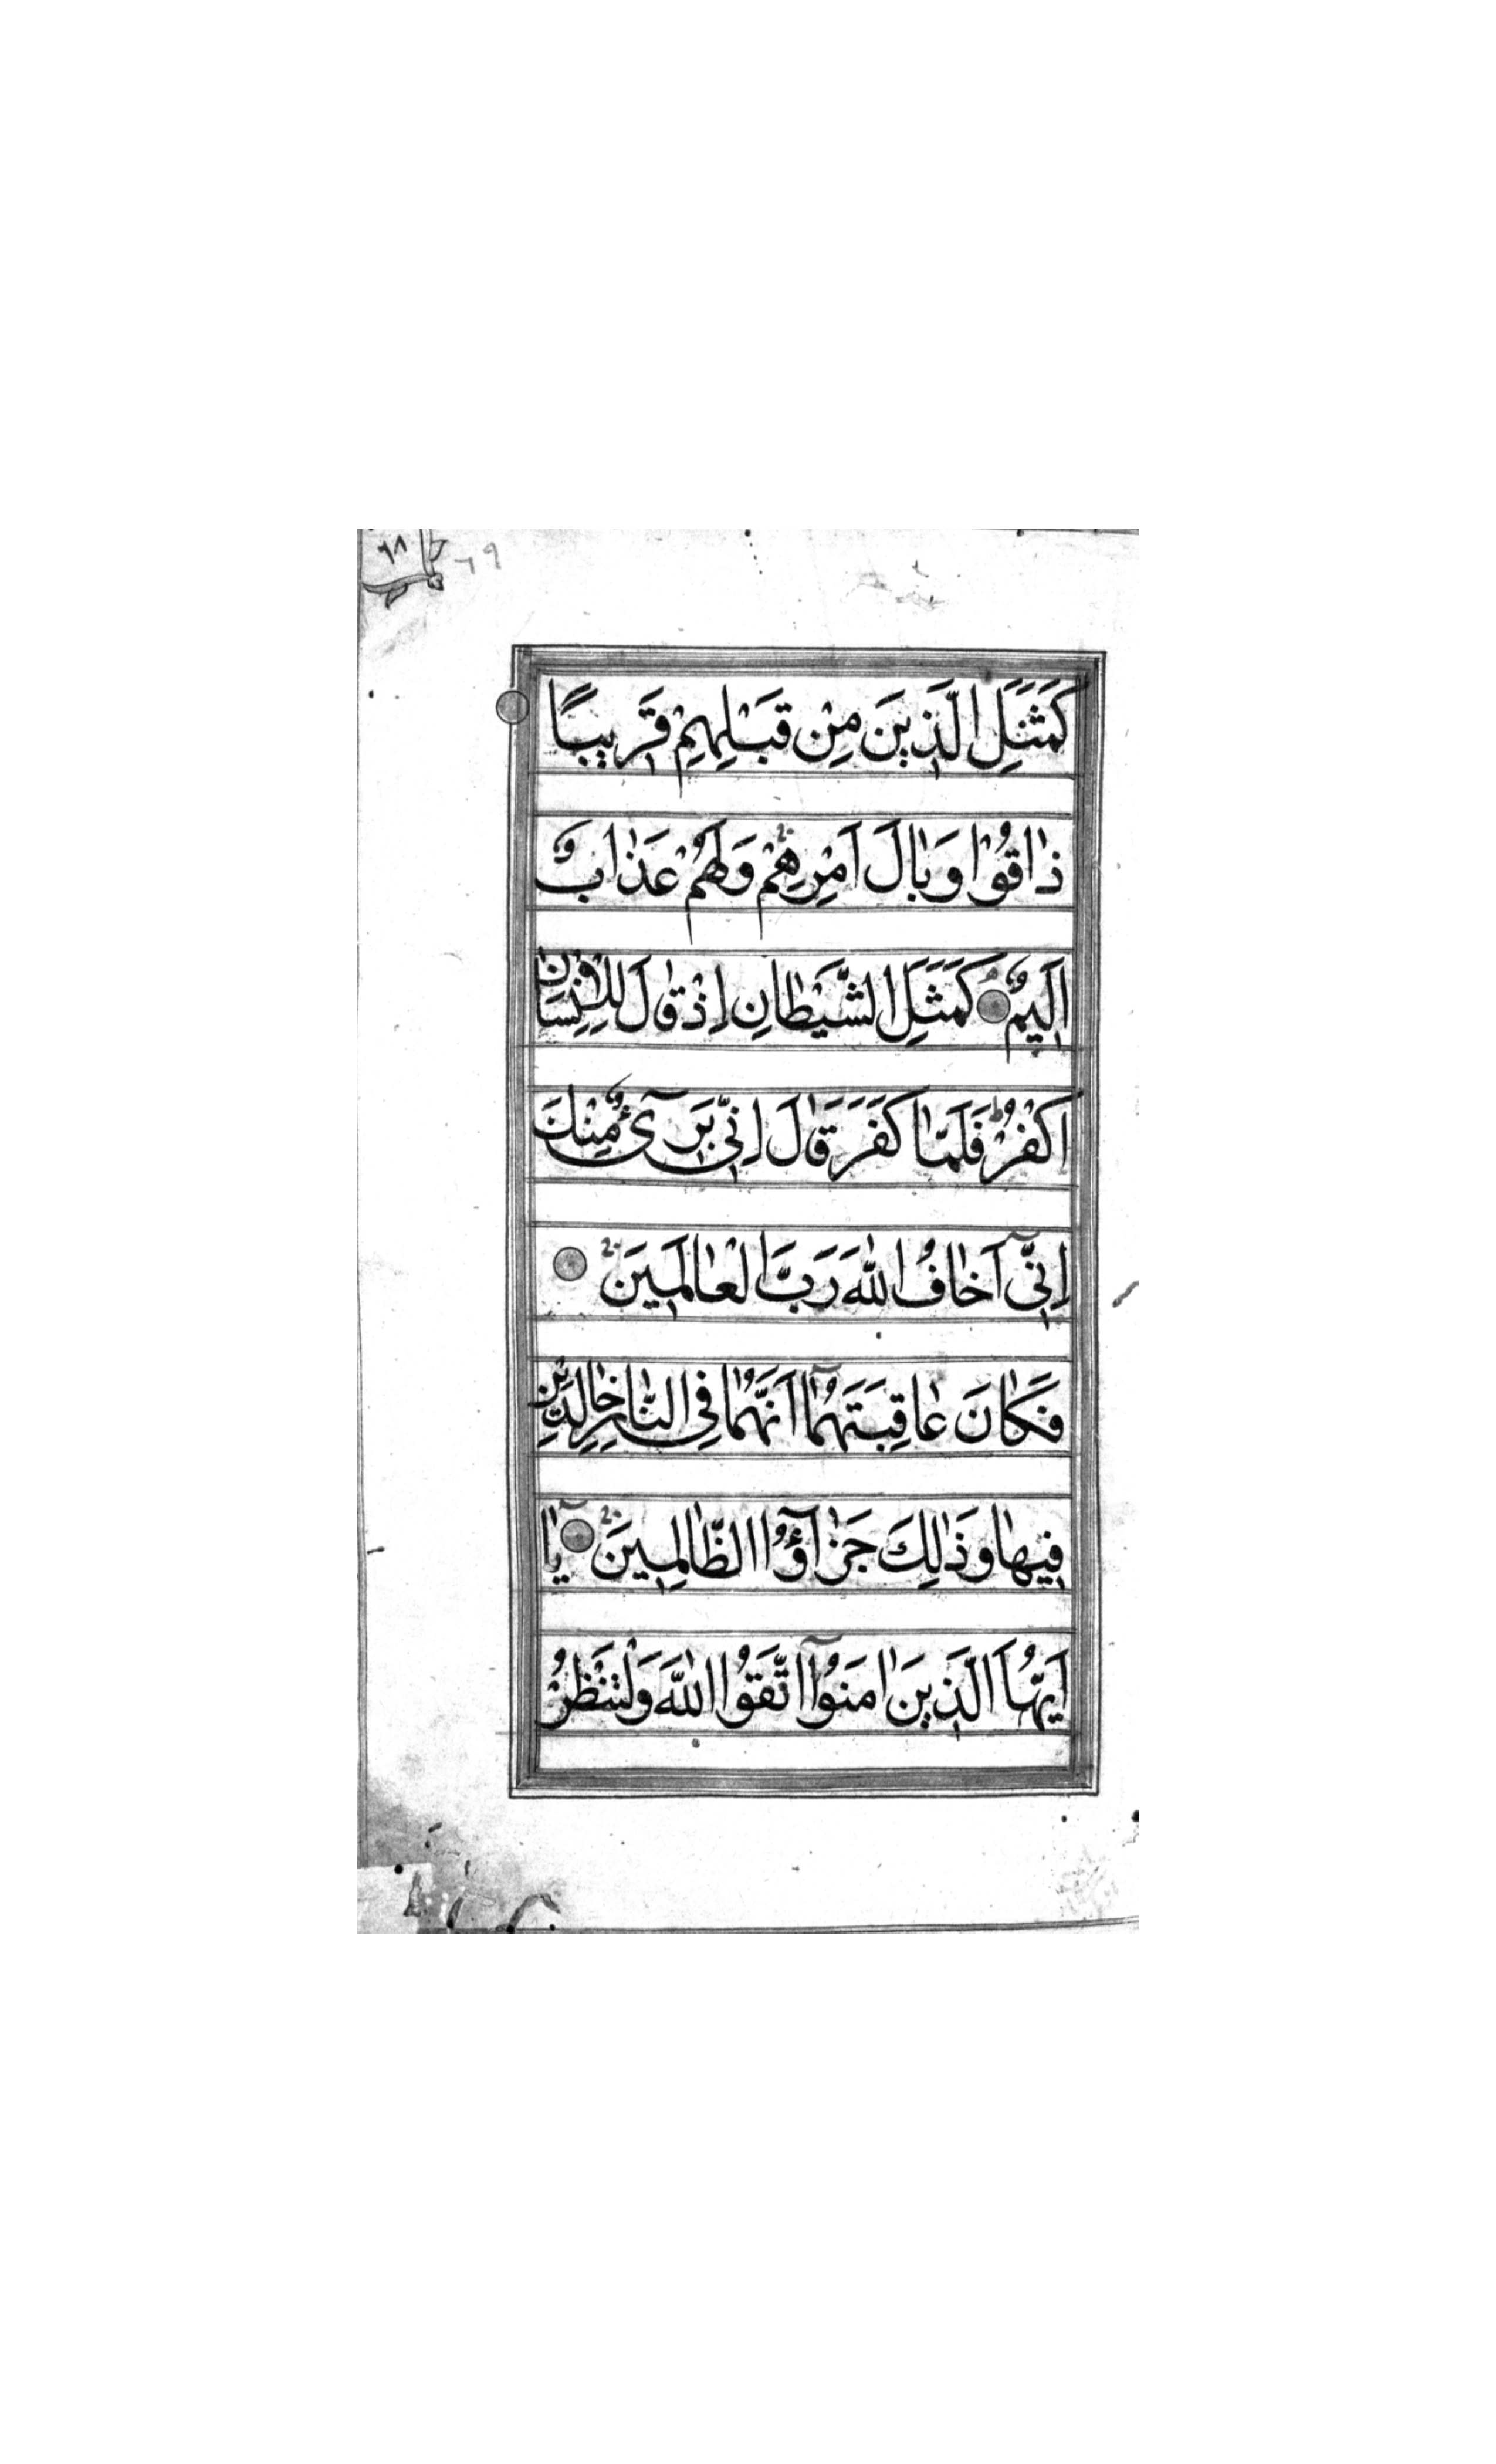 ٦٨ ٦٩
كَمَثَلِ الَّذِينَ مِنْ قَبْلِهِمْ قَرِيبًا
ذٰاقُوْا وَبٰالَ اَمْرِهِمْ وَلَهُمْ عَذٰابٌ
اَلِيمٌ كَمَثَلِ الشَّيْطٰانِ اِذْ قٰالَ لِلْاِنْسٰانِ
اكْفُرْ ط فَلَمّٰا كَفَرَ قٰالَ اِنّٖى بَرٖىٓءٌ مِنْكَ
اِنّٖىٓ اَخٰافُ اللّٰهَ رَبَّ الْعٰالَمٖينَ
فَكٰانَ عٰاقِبَتَهُمٰٓا اَنَّهُمٰا فِى النّٰارِ خٰالِدَيْنِ
فٖيهٰا وَذٰلِكَ جَزٰٓاؤُا الظّٰالِمٖينَ يٰٓا
اَيُّهَا الَّذٖينَ اٰمَنُوا اتَّقُوا اللّٰهَ وَلْتَنْظُرْ